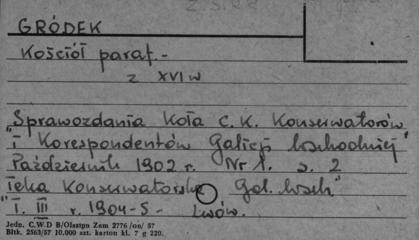 GRÓDEK
Kościół paraf. -
z XVI w
Sprawozdania Koła C. K. Konserwatorów
"i Korespondentów Galicji wschodniej"
Październik 1902 r. Nr 1. s. 2
"Teka Konserwatorska Gal. wsch"
T. III r. 1904-5 - Lwów.
Jedn. C.W.D B/Olsztyn Zam 2776/on/ 57
Bltk. 2563/57 10.000 szt. karton kl. 7 g 220.